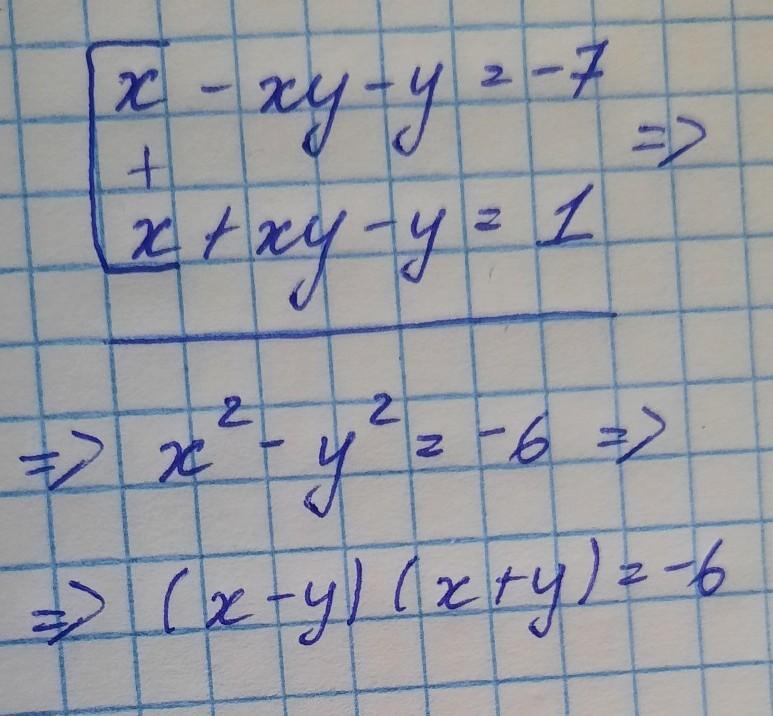 x - xy - y = -7
+ =>
x + xy - y = 1
=> x² - y² = -6 =>
=> (x - y) (x + y) = -6